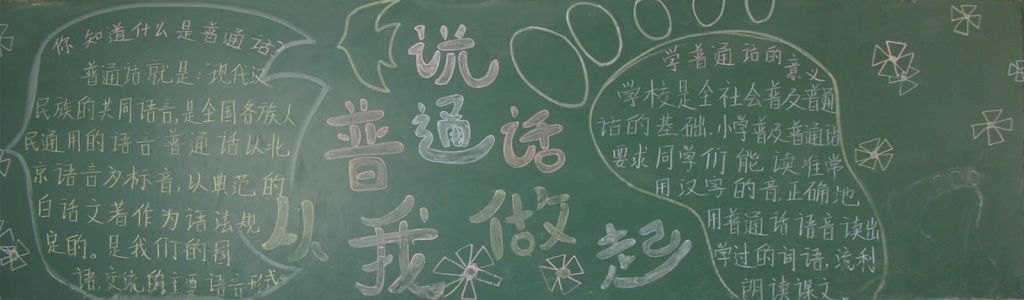 你知道什么是普通话?
普通话就是:现代汉
民族的共同语言,是全国各族人
民通用的语言普通话以北
京语言为标音,以典范的
白话文著作为语法规
定的。是我们的
语交流的主要语言形式
说
普通话
从我做起
学普通话的意义
学校是全社会普及普通
话的基础.小学普及普通话
要求同学们能读准常
用汉字的音,正确地
用普通话语音读出
学过的词语,流利
朗读课文